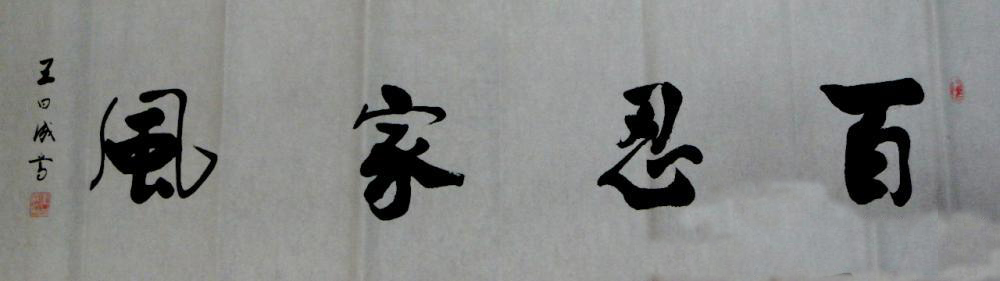 百忍家風
王日成書